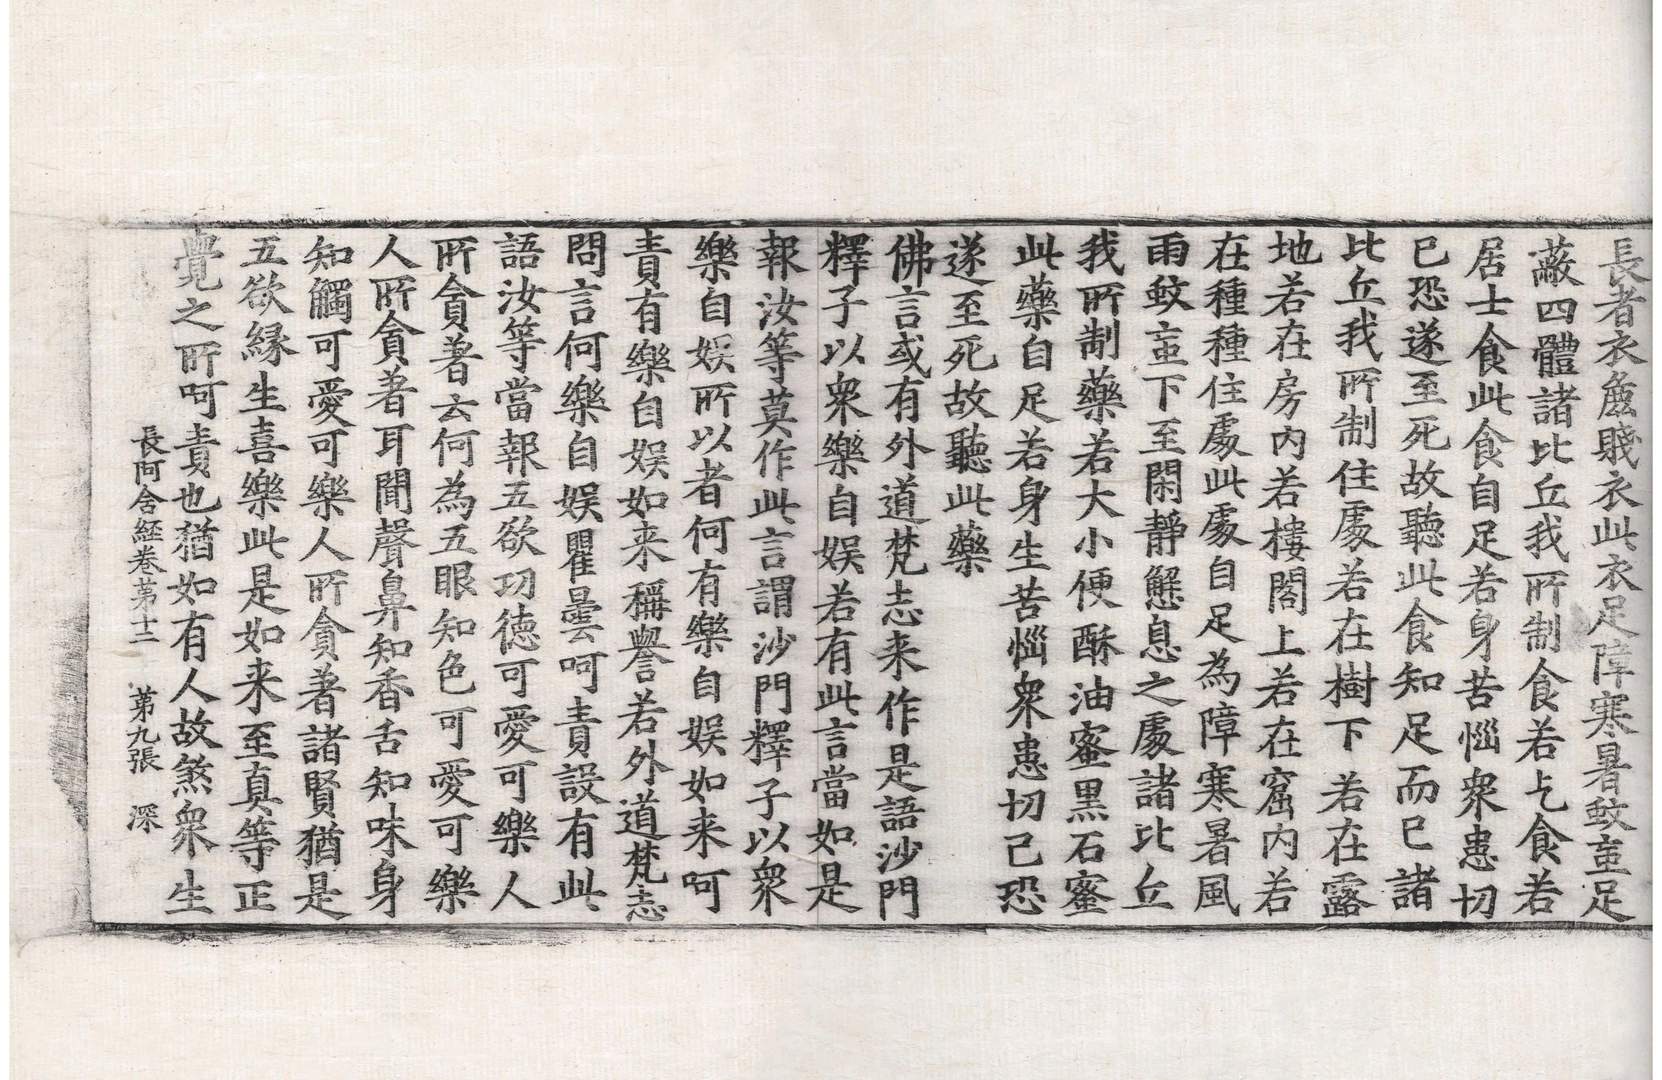 長者衣麁賤衣此衣足障寒暑蚊䖟足
蔽四體諸比丘我所制食若乞食若
居士食此食自足若身苦惱衆患切
已恐遂至死故聽此食知足而已諸
比丘我所制住處若在樹下若在露
地若在房内若樓閣上若在窟内若
在種種住處此處自足為障寒暑風
雨蚊䖟下至閑靜懈息之處諸比丘
我所制藥若大小便酥油蜜黒石蜜
此藥自足若身生苦惱衆患切已恐
遂至死故聽此藥
佛言或有外道梵志来作是語沙門
釋子以衆樂自娱若有此言當如是
報汝等莫作此言謂沙門釋子以衆
樂自娱所以者何有樂自娱如来呵
責有樂自娱如来稱譽若外道梵志
問言何樂自娱瞿曇呵責設有此
語汝等當報五欲功徳可愛可樂人
所貪著云何為五眼知色可愛可樂
人所貪著耳聞聲鼻知香舌知味身
知觸可愛可樂人所貪著諸賢猶是
五欲縁生喜樂此是如来至真等正
覺之所呵責也猶如有人故煞衆生
長阿含經卷苐十二　苐九張　深